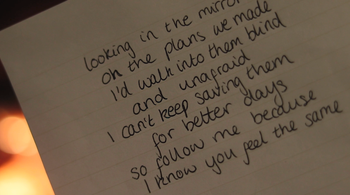 looking in the mirror
oh the plans we made
I'd walk into them blind
and unafraid
I can't keep saving them
for better days
so follow me because
I know you feel the same